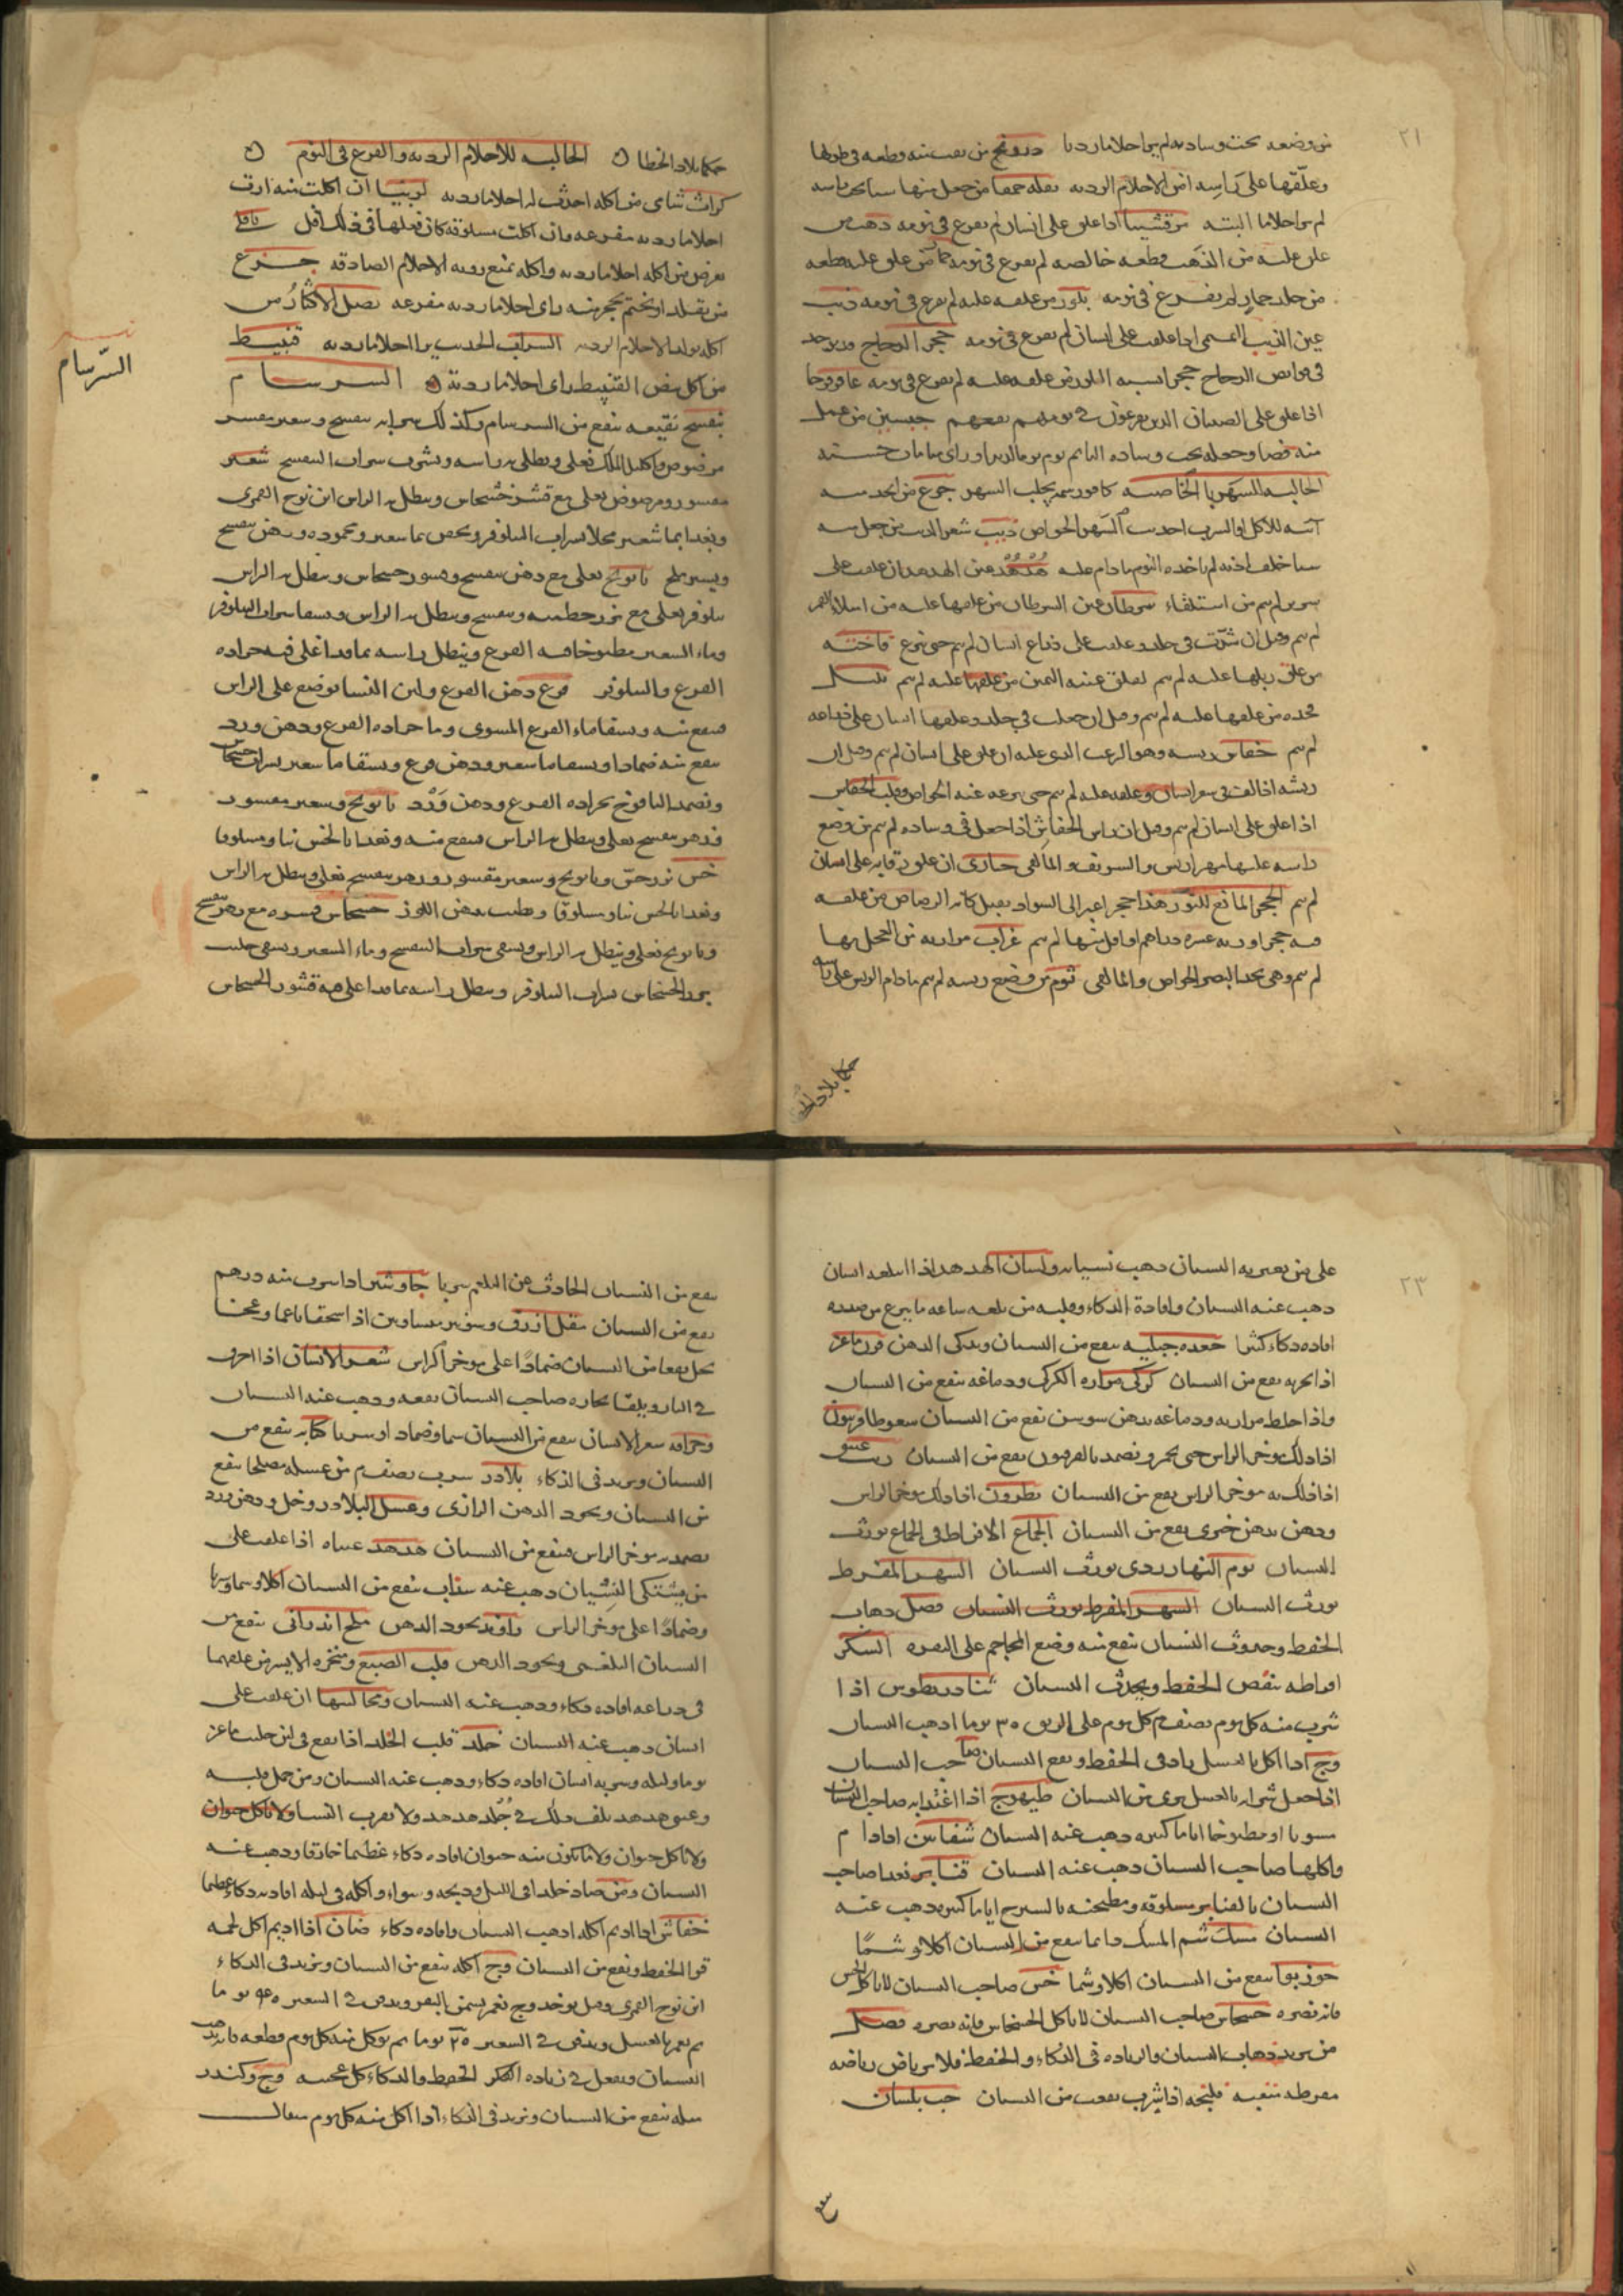 ٢١
من وضعه تحت وساده لم ير احلاما رديا درونج من نصب منه وقطعه في طولها
وعلقها على راسه امن الاحلام الرديه بقله حمقا من جعل منها سيا تحت راسه
لم ير احلاما البته مرقشيثا اذا علق على انسان لم يفزع في نومه ذهب من
علق عليه من الذهب قطعه خالصه لم يفزع في نومه حمار من علق عليه قطعه
من جلد حمار لم يفزع في نومه بلور من علقه عليه لم يفزع في نومه ذيب
عين الذيب اليمنى اذا علقت على انسان لم يفزع في نومه حجر الدجاج ويوجد
في قوانص الدجاج حجر السبه البلور من علقه عليه لم يفزع في نومه
اذا علق على الصبيان الذين يفزعون في نومهم نفعهم جبسين من عمل
منه قصا وجعله تحت وساده النايم نوم نوما لذيذا وراى منامات حسنه
الجالبه للسهر بالخاصيه كافور شمه يجلب السهر جزع من اتخذ منه
انيه للاكل او الشرب احدثت السهر الخواص ذيب شعر الذيب من جعل منه
سيا خلف اذنه لم ياخذه النوم ما دام عليه هدهد عين الهدهد ان علقت على
سرير لم ينم من استلقاء سرطان عين السرطان من علقها عليه من امتلاء القمر
لم ينم وقيل ان شدت في جلد وعلقت على ذراع انسان لم ينم حتى تنزع فاخته
من علق ريلها عليه لم ينم لقلق عينه اليمنى من علقها عليه لم ينم
مخده من علقها عليه لم ينم وقيل ان جعلت في جلد وعلقها انسان على ذراعه
لم ينم خفاش ريشه وهو الزغب الذي عليه ان علق على انسان لم ينم وقيل ان
ريشه اذا القي في شعر انسان وعلقه عليه لم ينم حتى ينزعه عنه الخواص وقلب الخفاش
اذا علق على انسان لم ينم وقيل ان راس الخفاش اذا جعل في وساده لم ينم من وضع
راسه عليها مهراريس والسويقه والمالقي حبارى ان علق رقابه على انسان
لم ينم الحجر المانع للنوم هذا حجر اغبر الى السواد ثقيل كانه الرصاص من علقه
منه حجرا وزنه عشره دراهم او اقل منها لم ينم غراب مرارته من اكتحل بها
لم ينم وهي تحد البصر الخواص والمالقي ثوم من وضع ريشه لم ينم ما دام الريش على راسه
حكما بلاد الخطا

حكما بلاد الخطا ٥ الجالبه للاحلام الرديه والفزع في النوم ٥
كراث شامي من اكله احدث له احلاما رديه لوبيا ان اكلت منه ارت
احلاما رديه مفزعه وان اكلت مسلوقه كان فعلها في ذلك اقل باقلى
يعرض من اكله احلاما رديه واكله يمنع رويه الاحلام الصادقه جزع
من تقلد او تختم بحجر منه راى احلاما رديه مفزعه بصل الاكثار من
اكله يولد الاحلام الرديه الشراب الحديث يرا احلاما رديه قنبيط
من اكل بيض القنبيط راى احلاما رديه ٥ السرسام
السرسام
بنفسج نقيعه ينفع من السرسام وكذلك شرابه بنفسج وشعير مقشر
مرضوض واكليل الملك يغلى ويطلى به راسه ويشرب شراب البنفسج شعير
مقشور ومرضوض يغلى مع قشر خشخاش وينطل به الراس ابن نوح القمري
ويغدا بما شعير محلا بشراب النيلوفر ويحقن بما شعير ومحموده ودهن بنفسج
ويسير ملح بابونج يغلى مع دهن بنفسج وقشور خشخاش وينطل به الراس
نيلوفر يغلى مع بزر خطميه وبنفسج وينطل به الراس ويسقا شراب النيلوفر
وماء الشعير مطبوخا فيه القرع وينطل راسه بما قد اغلي فيه جراده
القرع والنيلوفر قرع دهن القرع ولبن النسا يوضع على الراس
فينفع منه ويسقا ماء القرع المشوي وما جراده القرع ودهن ورد
ينفع منه ضمادا ويسقا ما شعير ودهن قرع ويسقا ما شعير بشراب خشخاش
ويضمد اليافوخ بجراده القرع ودهن ورد بابونج وشعير مقشور
وزهر بنفسج يغلى وينطل به الراس فينفع منه ويغدا بالخس نيا ومسلوقا
خس بزر خس وبابونج وشعير مقشور وزهر بنفسج يغلى وينطل به الراس
ويغدا بالخس نيا ومسلوقا ويطيب بدهن اللوز خشخاش قشوره مع زهر بنفسج
وبابونج يغلى وينطل به الراس ويسقى شراب البنفسج وماء الشعير ويسقى حليب
بزر الخشخاش بشراب النيلوفر وينطل راسه بما قد اغلي فيه قشور الخشخاش

٢٣
على من يعتريه النسيان ذهب نسيانه ولسان الهدهد اذا ابتلعه انسان
ذهب عنه النسيان وافاده الذكاء وقلبه من بلعه ساعه ما ينزع من صدره
افاده ذكاء كثيرا جعده جبليه ينفع من النسيان ويذكي الذهن قرن ماعز
اذا بخر به نفع من النسيان كركي مراره الكركي ودماغه ينفع من النسيان
واذا خلط مرارته ودماغه بدهن سوسن نفع من النسيان سعوطا فربيون
اذا دلك موخر الراس حتى يحمر ويضمد بالفربيون نفع من النسيان زيت عتيق
اذا دلك به موخر الراس نفع من النسيان نطرون اذا دلك موخر الراس
ودهن بدهن خيري نفع من النسيان الجماع الافراط في الجماع يورث
النسيان نوم النهار ردي يورث النسيان السهر المفرط
يورث النسيان السهر المفرط يورث النسيان فصل ذهاب
الحفظ وحدوث النسيان ينفع منه وضع المحاجم على النقره السكر
افراطه ينقص الحفظ ويحدث النسيان تيادريطوس اذا
شرب منه كل يوم نصف م كل يوم على الريق ٣٥ يوما اذهب النسيان
وج اذا اكل بالعسل زاد في الحفظ ونفع صاحب النسيان
اذا جعل شرابه بالعسل بري من النسيان طيهوج اذا اغتدا به صاحب النسيان
مشويا او مطبوخا اياما كثيره ذهب عنه النسيان شفانين اذا ادام
واكلها صاحب النسيان ذهب عنه النسيان قنابر تغدا صاحب
النسيان بالقنابر مسلوقه ومطجنه بالسيرج اياما كثيره ذهب عنه
النسيان مسك شم المسك دايما ينفع من النسيان اكلا وشما
جوزبوا ينفع من النسيان اكلا وشما خس صاحب النسيان لا ياكل الخس
فانه يضره خشخاش صاحب النسيان لا ياكل الخشخاش فانه يضره فصل
من يريد ذهاب النسيان والزياده في الذكاء والحفظ فلا يرتاض رياضه
مفرطه متعبه فلنجه اذا شرب نفعت من النسيان حب بلسان
ينفع

ينفع من النسيان الحادث عن البلغم شربا جاوشير اذا شرب منه درهم
نفع من النسيان مقل ازرق وصنوبر متساويين اذا سحقا ناعما وعجنا
بخل نفعا من النسيان ضمادا على موخر الراس شعر الانسان اذا احرق
في النار وتلقا بخاره صاحب النسيان نفعه وذهب عنه النسيان
وحراقه شعر الانسان ينفع من النسيان شما وضمادا وشربا كبابه ينفع من
النسيان ويزيد في الذكاء بلادر شرب نصف م من عسله مصلحا ينفع
من النسيان ويجود الذهن الرازي وعسل البلادر وخل ودهن ورد
يضمد به موخر الراس فينفع من النسيان هدهد عيناه اذا علقت على
من يشتكي النسيان ذهب عنه سذاب ينفع من النسيان اكلا وشما وشربا
وضمادا على موخر الراس راوند يجود الذهن ملح اندراني ينفع من
النسيان البلغمي ويجود الذهن قلب الضبع ومنخره الايسر من علقهما
في ذراعه افاده ذكاء وذهب عنه النسيان ومخالبها ان علقت على
انسان ذهب عنه النسيان خلد قلب الخلد اذا نقع في لبن حليب ماعز
يوما وليله وشربه انسان افاده ذكاء وذهب عنه النسيان ومن حمل قلبه
وعيني هدهد بلف ذلك في جلد هدهد ولا يقرب النسا ولا ياكل حيوان
ولا ياكل حيوان ولا ما يكون منه حيوان افاده ذكاء عظيما خارقا وذهب عنه
النسيان ومن صاد خلدا في الليل وذبحه وشواه واكله في ليله افاده ذكاء عظيما
خفاش اذا اديم اكله اذهب النسيان وافاده ذكاء ضان اذا اديم اكل لحمه
قوا الحفظ ونفع من النسيان وج اكله ينفع من النسيان ويزيد في الذكاء
ابن نوح القمري وقيل يوخذ وج يغمر بسمن البقر ويدفن في الشعير ٤٥ يوما
ثم يغمر بالعسل ويدفن في الشعير ٢٥ يوما ثم يوكل منه كل يوم قطعه فانه يذهب
النسيان ويفعل في زياده الفكر الحفظ والذكاء كل عجيبه وج وكندر
مثله ينفع من النسيان ويزيد في الذكاء اذا اكل منه كل يوم مثقال